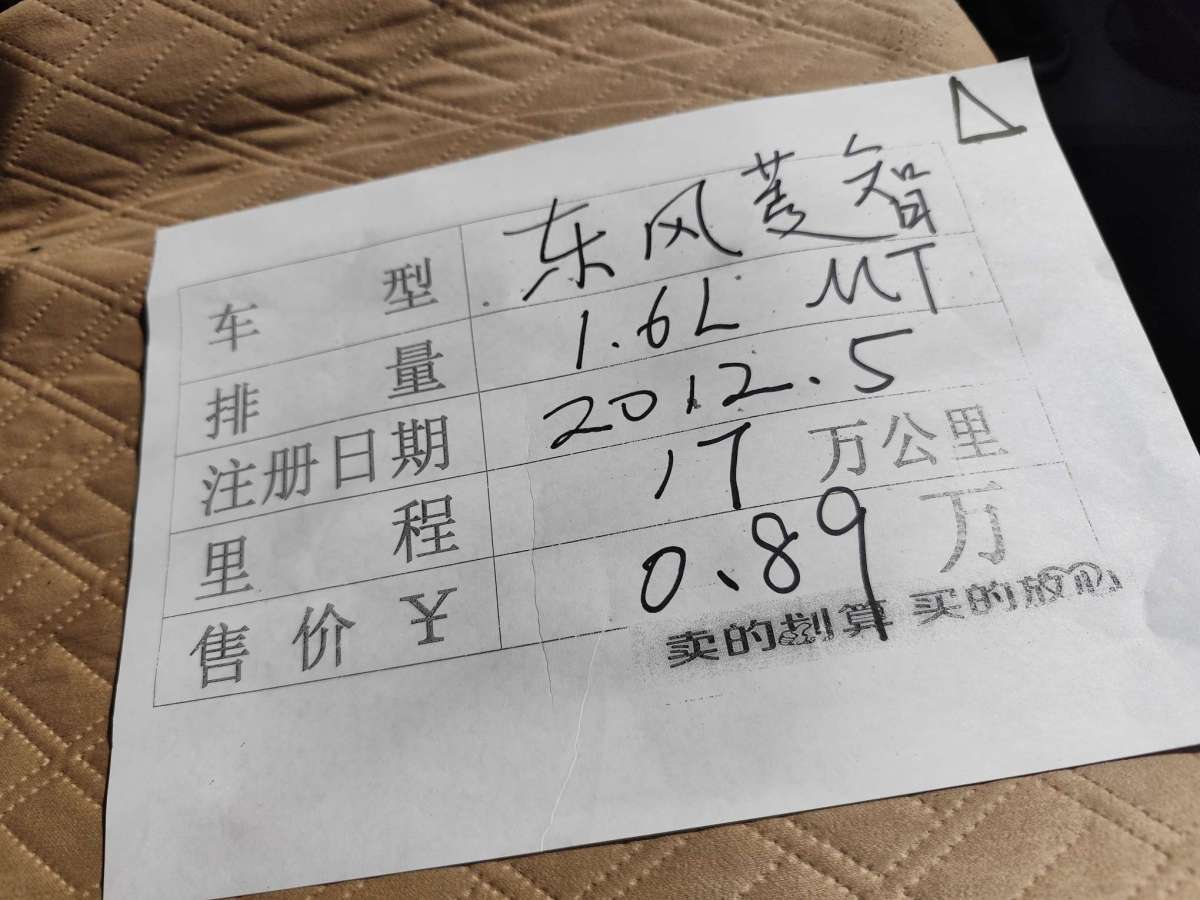 车型 东风菱智
排量 1.6L MT
注册日期 2012.5
里程 17 万公里
售价¥ 0.89 万
卖的划算 买的放心